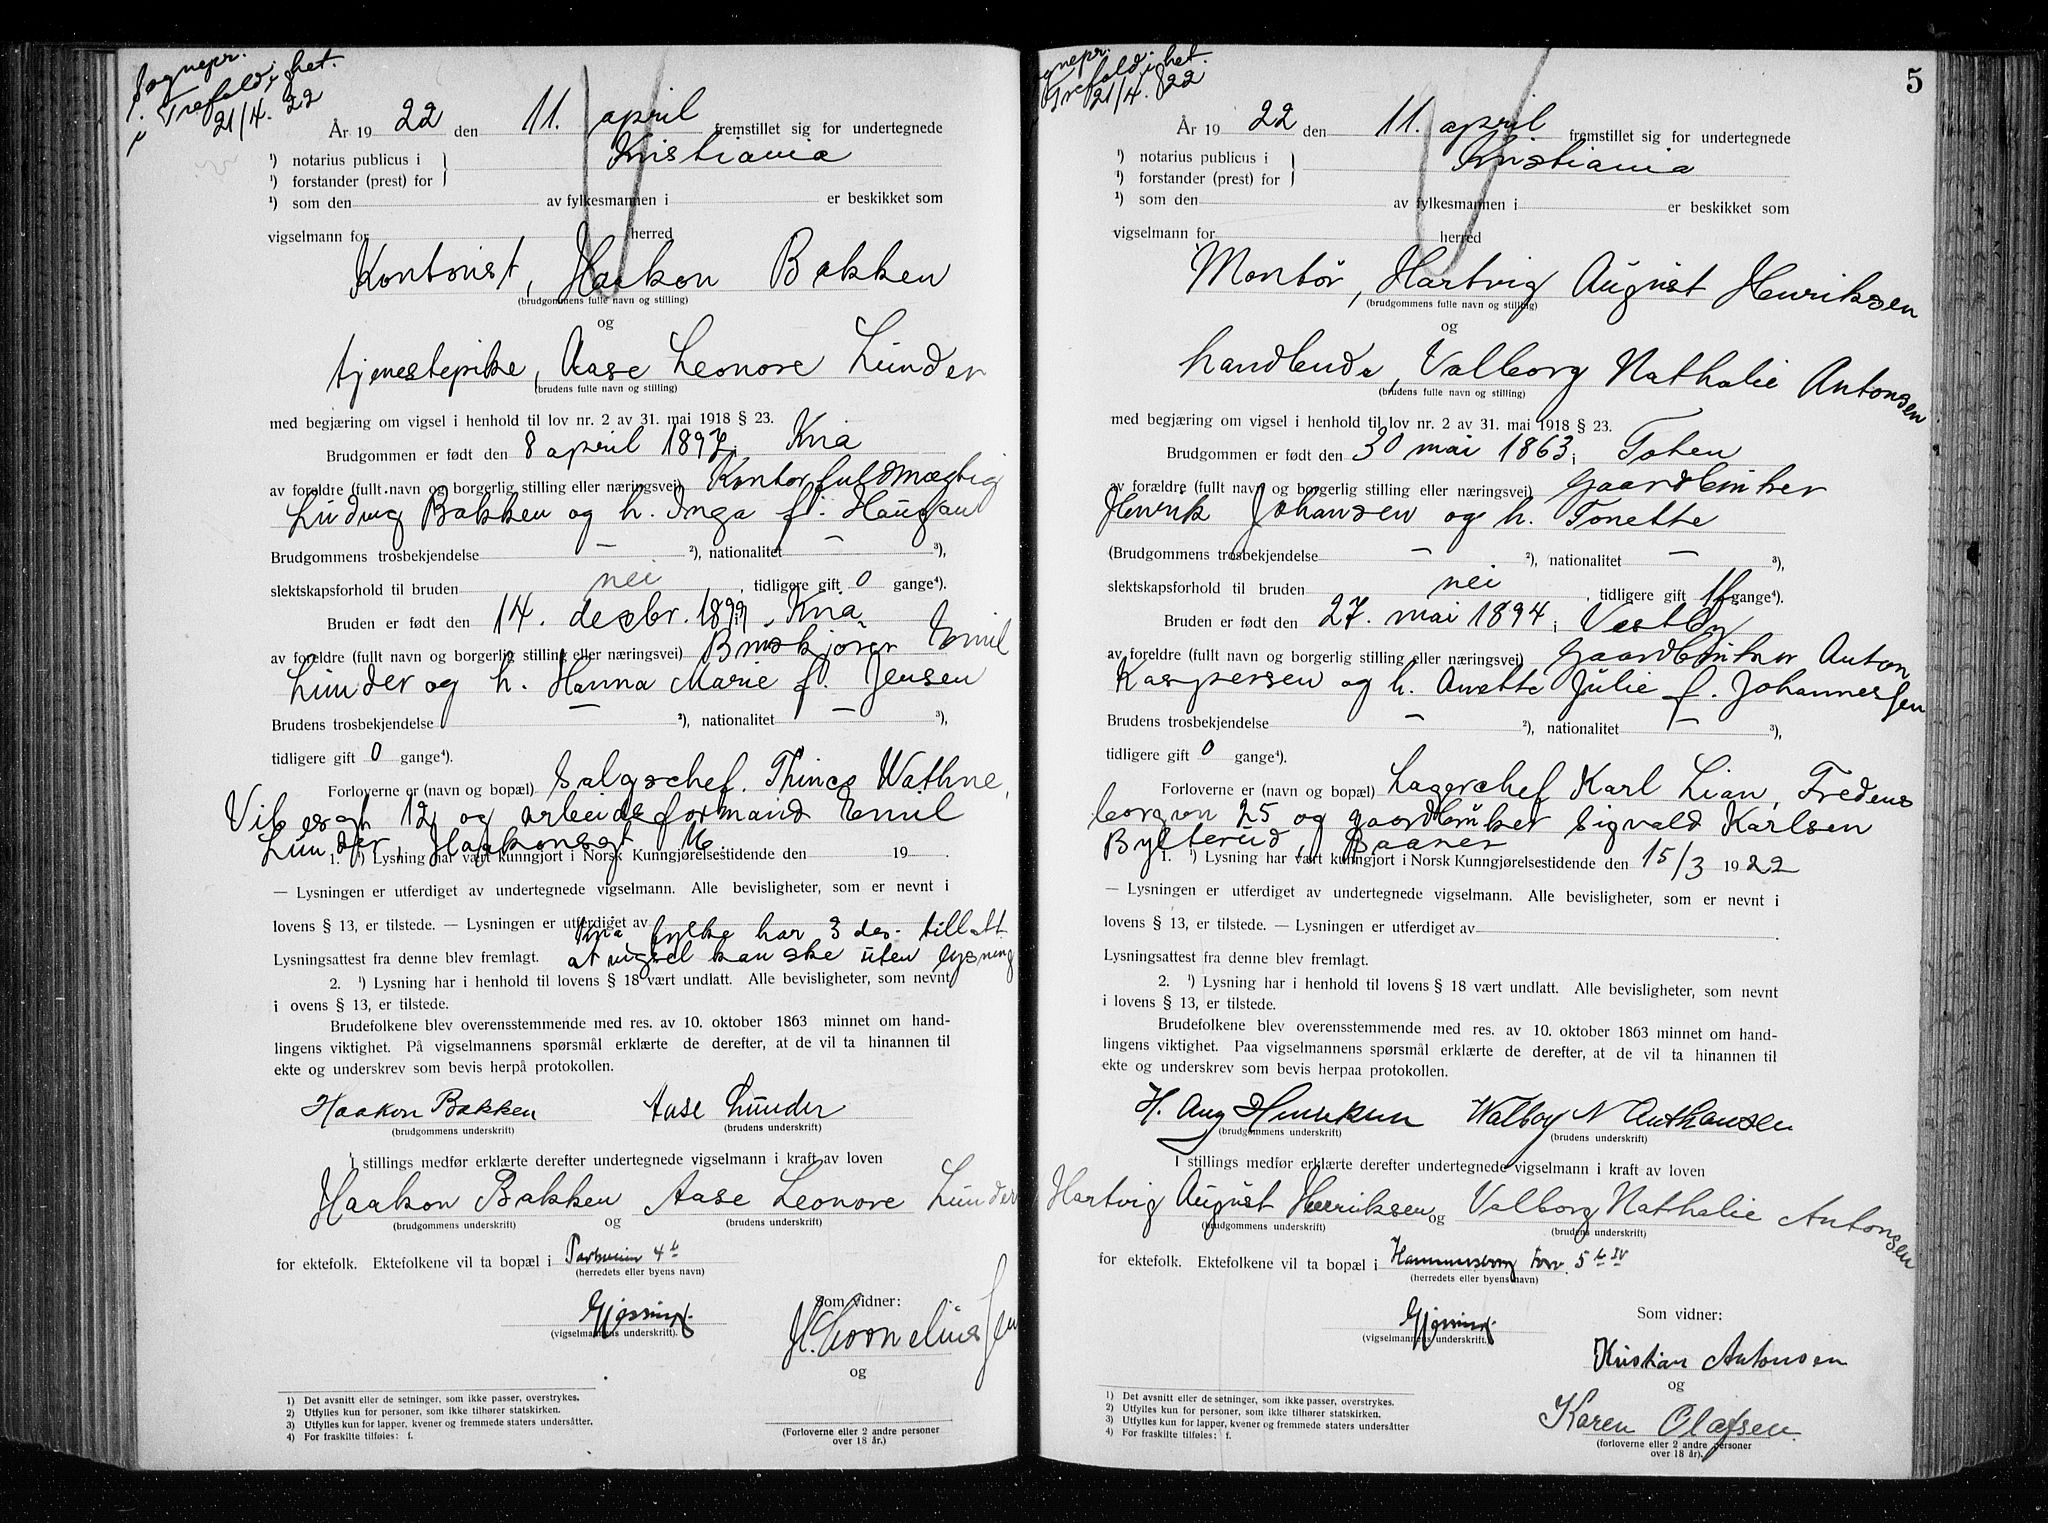 Sognepr.
i Trefoldighet.
21/4. 22
År 19 22 den 11. april fremstillet sig for undertegnede
¹) notarius publicus i } Kristiania
¹) forstander (prest) for
¹) som den av fylkesmannen i er beskikket som
vigselmann for herred
Kontorist, Haakon Bakken
(brudgommens fulle navn og stilling)
og
tjenestepike, Aase Leonore Lunder
(brudens fulle navn og stilling)
med begjæring om vigsel i henhold til lov nr. 2 av 31. mai 1918 § 23.
Brudgommen er født den 8 april 1897, Kria
av foreldre (fullt navn og borgerlig stilling eller næringsvei) Kontorfuldmægtig
Ludvig Bakken og h. Inga f. Haugan
Brudgommens trosbekjendelse — ²), nationalitet — ³),
slektskapsforhold til bruden nei, tidligere gift 0 gange⁴).
Bruden er født den 14. desbr. 1899, Kria
av foreldre (fullt navn og borgerlig stilling eller næringsvei) Emil
Lunder og h. Hanna Marie f. Jensen
Brudens trosbekjendelse — ²), nationalitet — ³),
tidligere gift 0 gange⁴).
Forloverne er (navn og bopæl) salgschef. Wathne,
Vibesgt 12 og arbeidsformand Emil
Lunder, Haakonsgt
1. ¹) Lysning har vært kunngjort i Norsk Kunngjørelsestidende den 19 .
— Lysningen er utferdiget av undertegnede vigselmann. Alle bevisligheter, som er nevnt i
lovens § 13, er tilstede. — Lysningen er utferdiget av
Kria fylke har 3 ds. tillatt
Lysningsattest fra denne blev fremlagt. at vigsel kan ske uten lysning
2. ¹) Lysning har i henhold til lovens § 18 vært undlatt. Alle bevisligheter, som nevnt
i ovens § 13, er tilstede.
Brudefolkene blev overensstemmende med res. av 10. oktober 1863 minnet om hand-
lingens viktighet. På vigselmannens spørsmål erklærte de derefter, at de vil ta hinannen til
ekte og underskrev som bevis herpå protokollen.
Haakon Bakken Aase Lunder
(brudgommens underskrift) (brudens underskrift)
I stillings medfør erklærte derefter undertegnede vigselmann i kraft av loven
Haakon Bakken og Aase Leonore Lunder
(brudgommens underskrift) (brudens underskrift)
for ektefolk. Ektefolkene vil ta bopæl i
(herredets eller byens navn)
Som vidner:
(vigselmannens underskrift).
H. Corneliussen
og
(Forloverne eller 2 andre personer
over 18 år.)
1) Det avsnitt eller de setninger, som ikke passer, overstrykes.
2) Utfylles kun for personer, som ikke tilhører statskirken.
3) Utfylles kun for lapper, kvener og fremmede staters undersåtter.
4) For fraskilte tilføies: f.
5
ognepr.
Trefoldighet.
21/4. 22
År 19 22 den 11. april fremstillet sig for undertegnede
¹) notarius publicus i } Kristiania
¹) forstander (prest) for
¹) som den av fylkesmannen i er beskikket som
vigselmann for herred
Montør, Hartvig August Henriksen
(brudgommens fulle navn og stilling)
og
handlende, Valborg Nathalie Antonsen
(brudens fulle navn og stilling)
med begjæring om vigsel i henhold til lov nr. 2 av 31. mai 1918 § 23.
Brudgommen er født den 30 mai 1863, Toten
av forældre (fullt navn og borgerlig stilling eller næringsvei) Gaardbruker
Henrik Johansen og h. Tonette
(Brudgommens trosbekjendelse — ²), nationalitet — ³),
slektskapsforhold til bruden nei, tidligere gift 1f gange⁴).
Bruden er født den 27. mai 1894, Vestby
av foreldre (fullt navn og borgerlig stilling eller næringsvei) Gaardbruker Anton
Kaspersen og h. Anette Julie f. Johannessen
Brudens trosbekjendelse — ²), nationalitet — ³),
tidligere gift 0 gange⁴).
Forloverne er (navn og bopæl) Lagerchef Karl Lian, Fredens
borgvn 25 og gaardbruker Sigvald Karlsen
Bylterud, Baaner
1. ¹) Lysning har vært kunngjort i Norsk Kunngjørelsestidende den 15/3 1922
— Lysningen er utferdiget av undertegnede vigselmann. Alle bevisligheter, som er nevnt i
lovens § 13, er tilstede. — Lysningen er utferdiget av .
Lysningsattest fra denne blev fremlagt.
2. ¹) Lysning har i henhold til lovens § 18 vært undlatt. Alle bevisligheter, som nevnt
i lovens § 13, er tilstede.
Brudefolkene blev overensstemmende med res. av 10. oktober 1863 minnet om hand-
lingens viktighet. Paa vigselmannens spørsmål erklærte de derefter, at de vil ta hinannen til
ekte og underskrev som bevis herpaa protokollen.
H. Aug Henriksen Walborg N Anthonsen
(brudgommens underskrift) (brudens underskrift)
I stillings medfør erklærte derefter undertegnede vigselmann i kraft av loven
Hartvig August Henriksen og Valborg Nathalie Antonsen
(brudgommens underskrift) (brudens underskrift)
for ektefolk. Ektefolkene vil ta bopæl i Hammersborg Torv. 5 b IV
(herredets eller byens navn)
Som vidner:
(vigselmannens underskrift.
Kristian Antonsen
og
Karen Olafsen.
(forloverne eller 2 andre personer
over 18 år).
1) Det avsnitt eller de setninger, som ikke passer, overstrykes.
2) Utfylles kun for personer, som ikke tilhører statskirken.
3) Utfylles kun for lapper, kvener og fremmede staters undersåtter
4) For fraskilte tilføies: f.